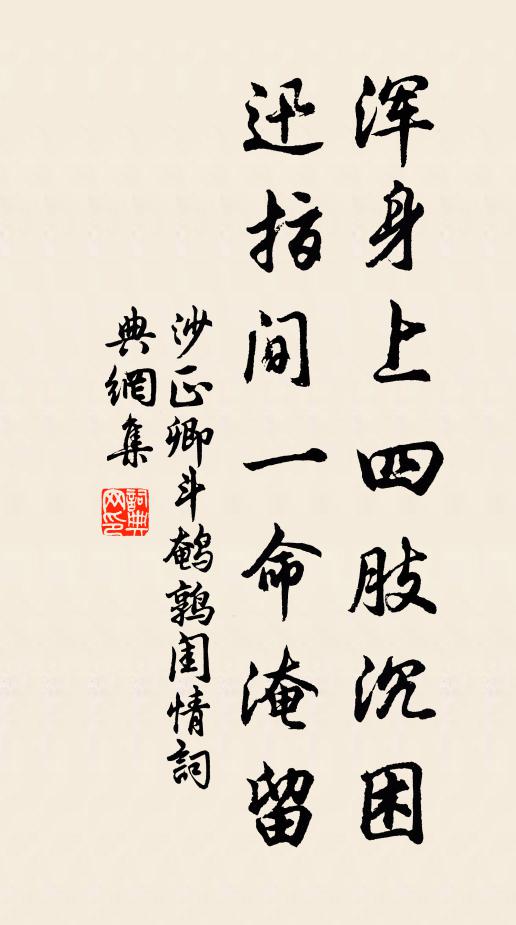 浑身上四肢沉困
迅指间一命淹留
沙正卿斗鹌鹑闺情詞
典網集
詞典网印